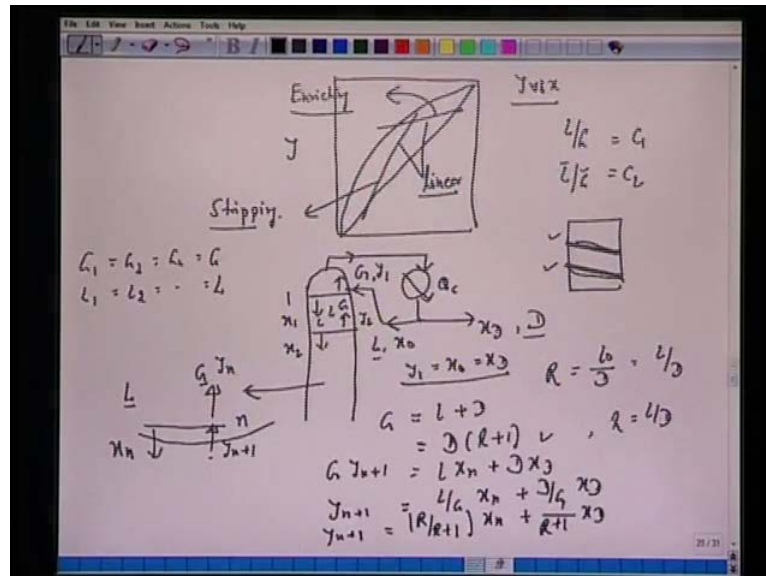 File Edit View Insert Actions Tools Help
B I
Enriching
y vs x
y
L/G = C₁
L̄/Ḡ = C₂
Linear
Stripping.
G₁ = G₂ = G₃ = G
L₁ = L₂ = - = L
G, y₁
Q_c
1
x₁
L
L
G
y₂
x₂
L, x₀
x_D, D
y₁ = x₀ = x_D
R = L₀/D = L/D
L
G yₙ
n
xₙ
yₙ₊₁
G = L + D
= D(R+1) ✓ , R = L/D
G yₙ₊₁ = L xₙ + D x_D
yₙ₊₁ = L/G xₙ + D/G x_D
yₙ₊₁ = (R/R+1) xₙ + 1/R+1 x_D
20/31